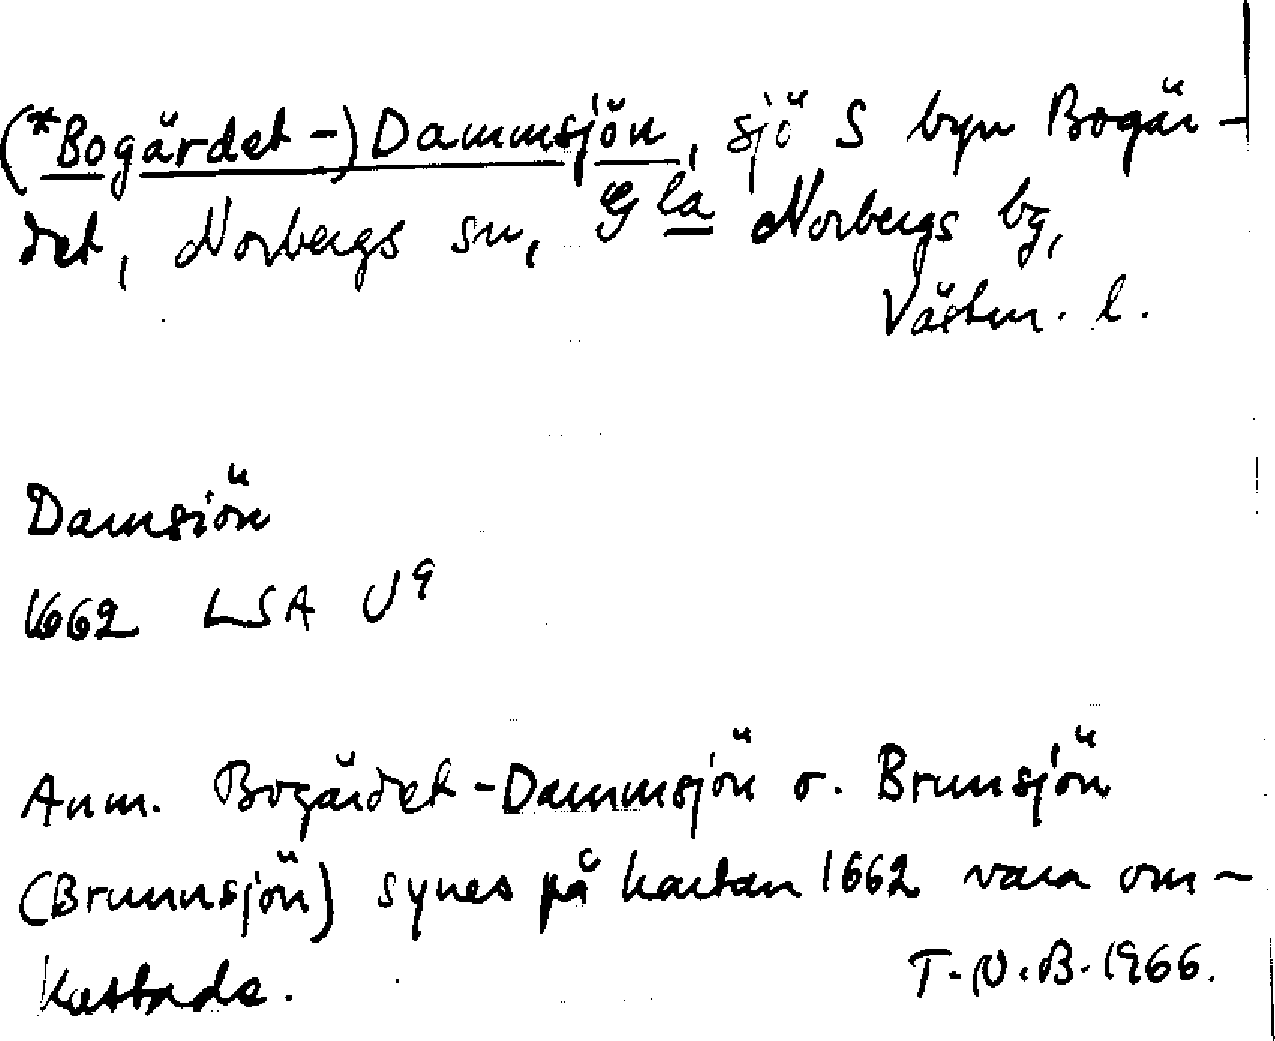 (*Bogärdet-)Dammsjön, sjö S byn Bogär-
det, Norbergs sn, Gla Norbergs bg,
Västm. l.
Damsiön
1662 LSA U9
Anm. Bogärdet-Dammsjön o. Brunsjön
(Brunnsjön) synes på kartan 1662 vara om-
kastade.
T.N.B. 1966.